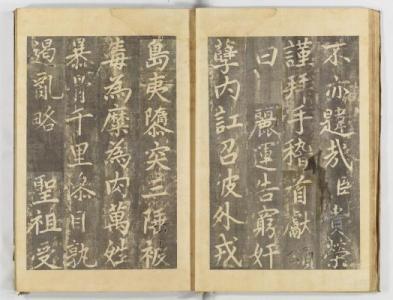 不亦韙哉臣貴榮
謹拜手稽首獻頌
曰 麗運告窮奸
孽內訌召彼外戎
島夷隳突三陲被
毒為糜為肉萬姓
暴骨千里慘目孰
遏亂略 聖祖受